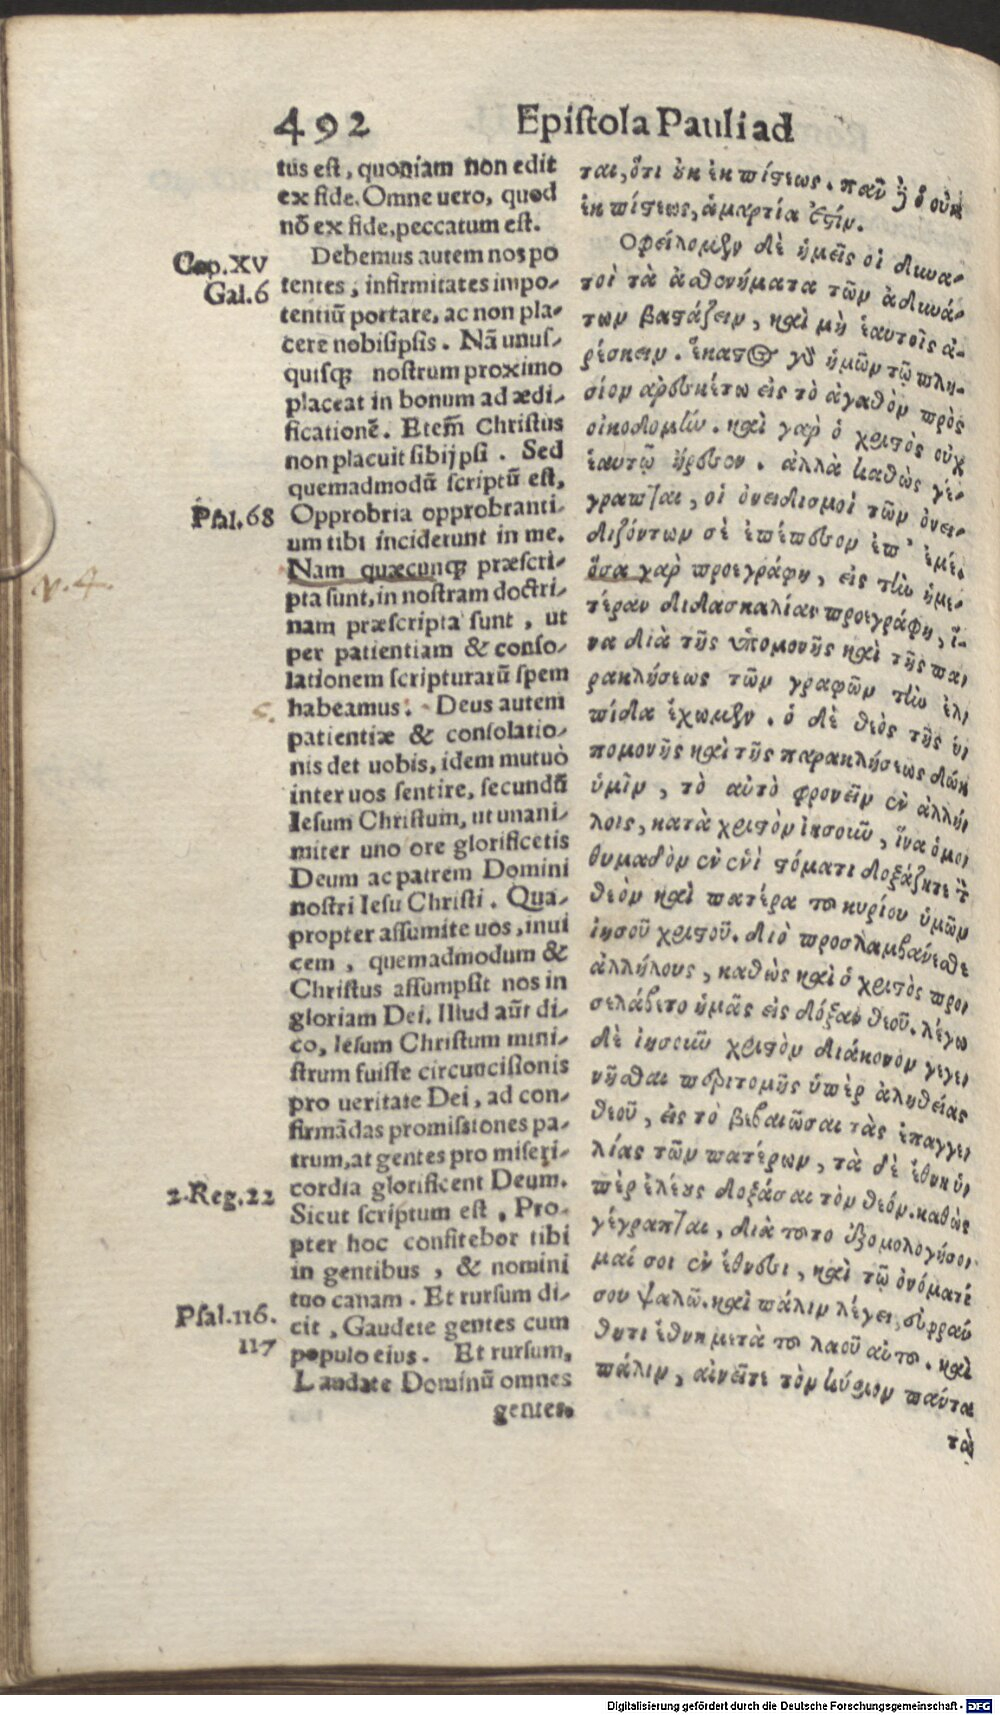 492 Epistola Pauli ad
tus est, quoniam non edit
ex fide. Omne uero, quod
nō ex fide, peccatum est.
Cap. XV
Debemus autem nos po
Gal. 6
tentes, infirmitates impo-
tentiū portare, ac non pla-
cere nobisipsis. Nā unus-
quisq; nostrum proximo
placeat in bonum ad ædi-
ficationē. Etem̃ Christus
non placuit sibijpsi. Sed
quemadmodū scriptū est,
Psal. 68
Opprobria opprobranti-
um tibi inciderunt in me.
v. 4.
Nam quæcunq; præscri-
pta sunt, in nostram doctri-
nam præscripta sunt, ut
per patientiam & conso-
lationem scripturarū spem
5.
habeamus. Deus autem
patientiæ & consolatio-
nis det uobis, idem mutuò
inter uos sentire, secundū
Iesum Christum, ut unani-
miter uno ore glorificetis
Deum ac patrem Domini
nostri Iesu Christi. Qua-
propter assumite uos, inui
cem, quemadmodum &
Christus assumpsit nos in
gloriam Dei. Illud aūt di-
co, Iesum Christum mini-
strum fuisse circuncisionis
pro ueritate Dei, ad con-
firmādas promissiones pa-
trum, at gentes pro miseri-
cordia glorificent Deum.
2. Reg. 22
Sicut scriptum est, Pro-
pter hoc confitebor tibi
in gentibus, & nomini
tuo canam. Et rursum di-
Psal. 116.
cit, Gaudete gentes cum
117
populo eius. Et rursum,
Laudate Dominū omnes
gentes.
ται, ὅτι ουκ ἐκ πίστεως. παῦ ὃ δ οὐκ
ἐκ πίστεως, ἁμαρτία ἐστίν.
Οφείλομεν δὲ ἡμεῖς οἱ δυνα-
τοὶ τὰ ἀσθενήματα τῶν ἀδυνά-
των βαστάζειν, καὶ μὴ ἑαυτοῖς ἀ-
ρέσκειν. ἕκαστος γὸ ἡμῶν τῷ πλη-
σίον ἀρεσκέτω εἰς τὸ ἀγαθὸν πρὸς
οἰκοδομήν. καὶ γὰρ ὁ χριστὸς οὐχ
ἑαυτῷ ἤρεσεν. ἀλλὰ καθὼς γέ-
γραπται, οἱ ὀνειδισμοὶ τῶν ὀνει-
διζόντων σὲ ἐπέπεσον ἐπ' ἐμέ.
ὅσα γὰρ προεγράφη, εἰς τὴν ἡμε-
τέραν διδασκαλίαν προεγράφη, ἵ-
να διὰ τῆς ὑπομονῆς καὶ τῆς πα-
ρακλήσεως τῶν γραφῶν τὴν ἐλ-
πίδα ἔχωμεν. ὁ δὲ θεὸς τῆς ὑ-
πομονῆς καὶ τῆς παρακλήσεως δώῃ
ὑμῖν, τὸ αὐτὸ φρονεῖν ἐν ἀλλή-
λοις, κατὰ χριστὸν ἰησοῦν, ἵνα ὁμο-
θυμαδὸν ἐν ἑνὶ στόματι δοξάζητε τ
θεὸν καὶ πατέρα του κυρίου ὑμῶν
ἰησοῦ χριστοῦ. διὸ προσλαμβάνεσθε
ἀλλήλους, καθὼς καὶ ὁ χριστὸς προ-
σελάβετο ἡμᾶς εἰς δόξαν θεοῦ. λέγω
δὲ ἰησοῦν χριστὸν διάκονον γεγε-
νῆσθαι περιτομῆς ὑπὲρ ἀληθείας
θεοῦ, εἰς τὸ βεβαιῶσαι τὰς ἐπαγγε-
λίας τῶν πατέρων, τὰ δὲ ἔθνη ὑ-
πὲρ ἐλέους δοξάσαι τὸν θεόν. καθὼς
γέγραπται, διὰ τουτο ἐξομολογήσο-
μαί σοι ἐν ἔθνεσι, καὶ τῷ ὀνόματί
σου ψαλῶ. καὶ πάλιν λέγει, εὐφράν
θητε ἔθνη μετὰ του λαοῦ αὐτου. καὶ
πάλιν, αἰνεῖτε τὸν κύριον πάντα
τὰ
Digitalisierung gefördert durch die Deutsche Forschungsgemeinschaft - DFG